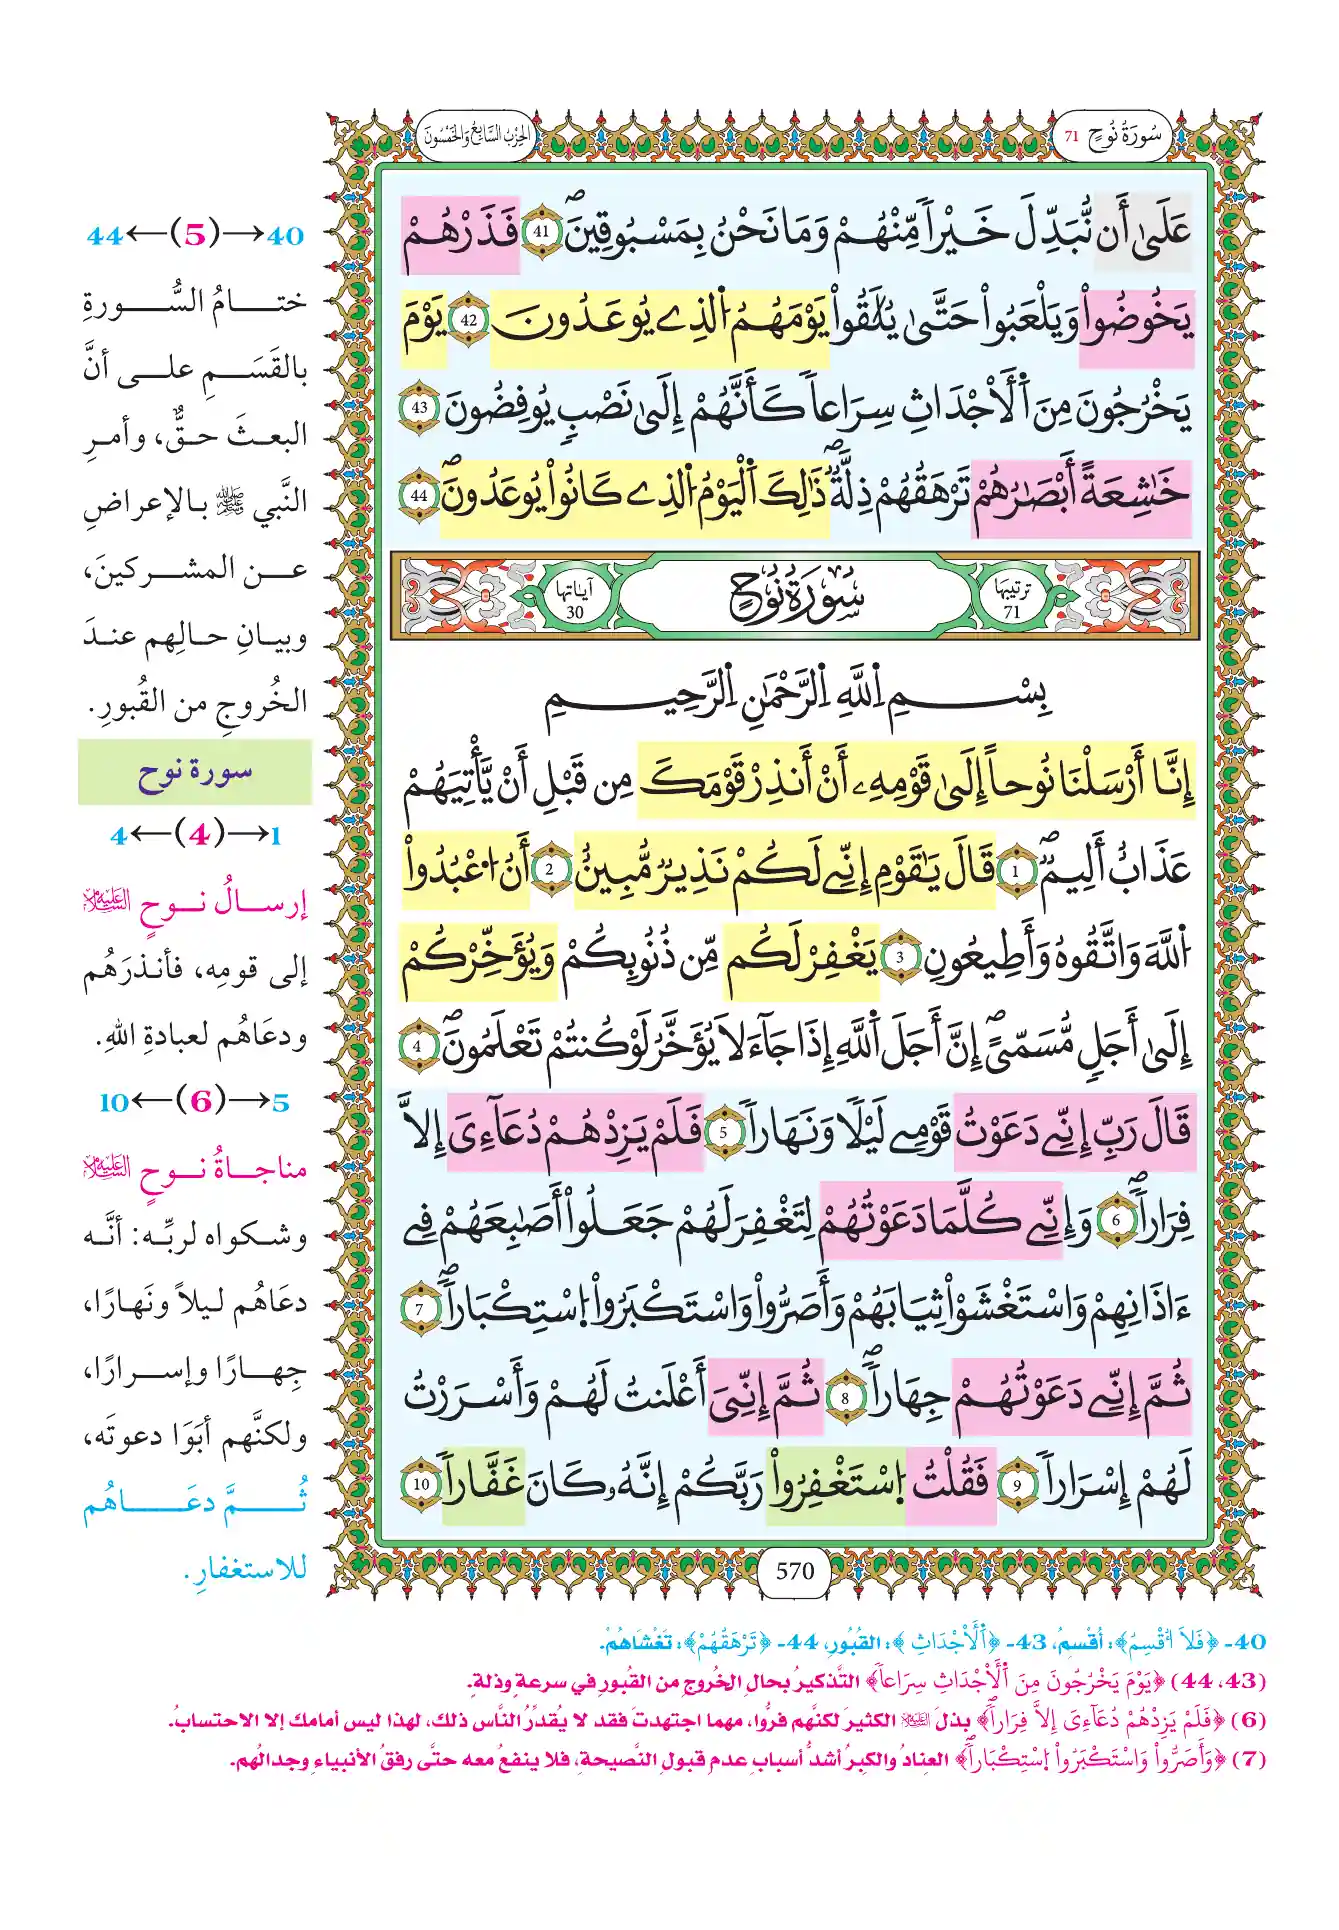 سُورَةُ نُوحٍ 71
الحِزْبُ السَّابِعُ وَالخَمْسُونَ
عَلَىٰ أَن نُّبَدِّلَ خَيْراً مِّنْهُمْ وَمَا نَحْنُ بِمَسْبُوقِينَۖ 41 فَذَرْهُمْ
يَخُوضُواْ وَيَلْعَبُواْ حَتَّىٰ يُلَٰقُواْ يَوْمَهُمُ اُلذِے يُوعَدُونَ 42 يَوْمَ
يَخْرُجُونَ مِنَ اَلْأَجْدَاثِ سِرَاعاً كَأَنَّهُمْ إِلَىٰ نَصْبٍ يُوفِضُونَ 43
خَٰشِعَةً أَبْصَٰرُهُمْ تَرْهَقُهُمْ ذِلَّةٌۖ ذَٰلِكَ اَلْيَوْمُ اُلذِے كَانُواْ يُوعَدُونَۖ 44
ترتيبها 71
سُورَةُ نُوحٍ
آياتها 30
بِسْمِ اِللَّهِ اِلرَّحْمَٰنِ اِلرَّحِيمِ
إِنَّا أَرْسَلْنَا نُوحاً إِلَىٰ قَوْمِهِۦ أَنْ أَنذِرْ قَوْمَكَ مِن قَبْلِ أَنْ يَّأْتِيَهُمْ
عَذَابٌ أَلِيمٌۖ 1 قَالَ يَٰقَوْمِ إِنِّے لَكُمْ نَذِيرٌ مُّبِينٌ 2 أَنُ اُعْبُدُواْ
اُللَّهَ وَاتَّقُوهُ وَأَطِيعُونِ 3 يَغْفِرْ لَكُم مِّن ذُنُوبِكُمْ وَيُؤَخِّرْكُمْ
إِلَىٰ أَجَلٍ مُّسَمّىًۖ إِنَّ أَجَلَ اَللَّهِ إِذَا جَآءَ لَا يُؤَخَّرُ لَوْ كُنتُمْ تَعْلَمُونَۖ 4
قَالَ رَبِّ إِنِّے دَعَوْتُ قَوْمِے لَيْلًا وَنَهَاراً 5 فَلَمْ يَزِدْهُمْ دُعَآءِىَ إِلَّا
فِرَاراًۖ 6 وَإِنِّے كُلَّمَا دَعَوْتُهُمْ لِتَغْفِرَ لَهُمْ جَعَلُواْ أَصَٰبِعَهُمْ فِے
ءَاذَانِهِمْ وَاسْتَغْشَوْاْ ثِيَابَهُمْ وَأَصَرُّواْ وَاسْتَكْبَرُواْ اُسْتِكْبَاراًۖ 7
ثُمَّ إِنِّے دَعَوْتُهُمْ جِهَاراًۖ 8 ثُمَّ إِنِّيَ أَعْلَنتُ لَهُمْ وَأَسْرَرْتُ
لَهُمْ إِسْرَاراً 9 فَقُلْتُ اُسْتَغْفِرُواْ رَبَّكُمْ إِنَّهُۥ كَانَ غَفَّاراً 10
570
40→(5)←44
ختامُ السُّورةِ
بالقَسَمِ على أنَّ
البعثَ حقٌّ، وأمرِ
النَّبي ﷺ بالإعراضِ
عن المشركينَ،
وبيانِ حالِهم عندَ
الخُروجِ من القُبورِ.
سورة نوح
1→(4)←4
إرسالُ نوحٍ عليه السلام
إلى قومِه، فأنذرَهُم
ودعَاهُم لعبادةِ اللهِ.
5→(6)←10
مناجاةُ نوحٍ عليه السلام
وشكواه لربِّه: أنَّه
دعَاهُم ليلاً ونَهارًا،
جِهارًا وإسرارًا،
ولكنَّهم أبَوَا دعوتَه،
ثُمَّ دعَاهُم
للاستغفارِ.
40- ﴿فَلَا أُقْسِمُ﴾: أقْسِمُ، 43- ﴿اَلْأَجْدَاثِ﴾: القُبُورِ، 44- ﴿تَرْهَقُهُمْ﴾: تَغْشَاهُمْ.
(43، 44) ﴿يَوْمَ يَخْرُجُونَ مِنَ اَلْأَجْدَاثِ سِرَاعاً﴾ التَّذكيرُ بحالِ الخُروجِ من القُبورِ في سرعةٍ وذلةٍ.
(6) ﴿فَلَمْ يَزِدْهُمْ دُعَآءِىَ إِلَّا فِرَاراًۖ﴾ بذلَ عليه السلام الكثيرَ لكنَّهم فرُّوا، مهما اجتهدتَ فقد لا يُقدِّرُ النَّاس ذلك، لهذا ليس أمامك إلا الاحتسابُ.
(7) ﴿وَأَصَرُّواْ وَاسْتَكْبَرُواْ اُسْتِكْبَاراًۖ﴾ العنادُ والكبرُ أشدُّ أسبابِ عدمِ قبولِ النَّصيحةِ، فلا ينفعُ معه حتَّى رفقُ الأنبياءِ وجدالُهم.